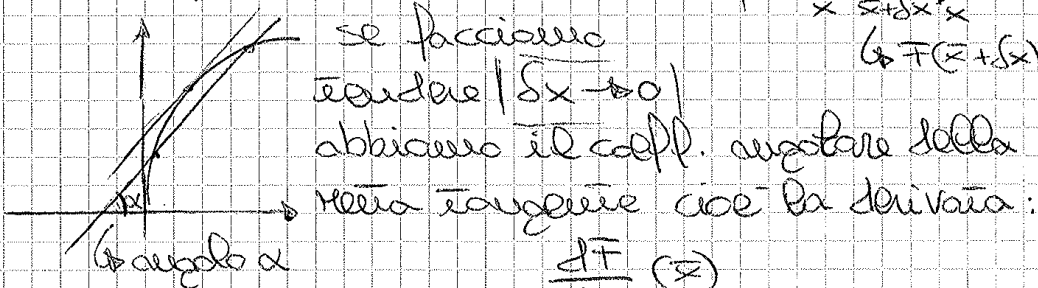 x x̄+δx x
↳ F(x̄+δx)
se facciamo
tendere |δx→0|
abbiamo il coeff. angolare della
retta tangente cioè la derivata:
α
↳ angolo α
dF (x̄)